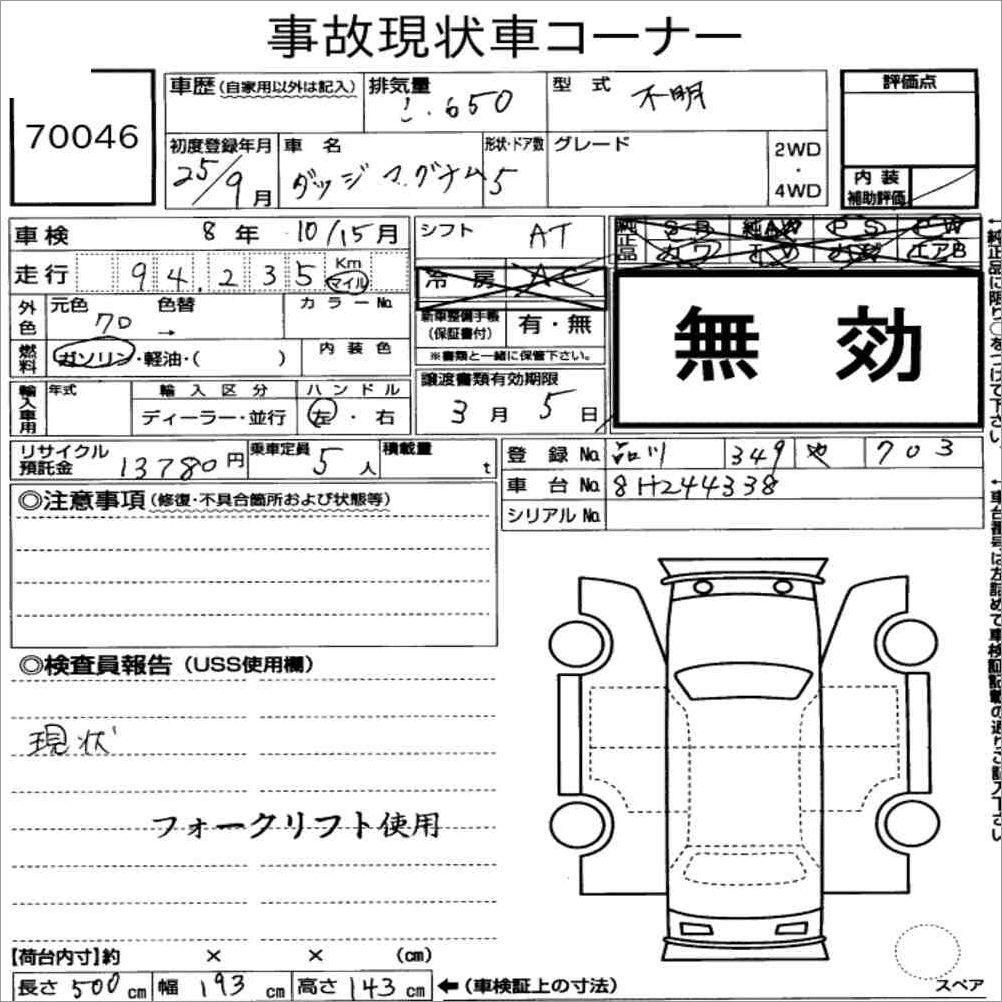 事故現状車コーナー
70046
車歴(自家用以外は記入)
排気量
型式 不明
評価点
初度登録年月 25/9月
車名 ダッジ マグナム
形状・ドア数 5
グレード
2WD・4WD
内装補助評価
車検 8年 10/15月
シフト AT
純正品 SR 純AW PS PW
カワ ナビ エアB
走行 94,235 Km マイル
冷房 AC
外色 元色 色替 カラーNo.
→
新車整備手帳(保証書付) 有・無
※書類と一緒に保管下さい。
無効
燃料 ガソリン・軽油・( )
内装色
輸入車用 年式
輸入区分 ディーラー・並行
ハンドル 左・右
譲渡書類有効期限
3月5日
リサイクル預託金 13780円
乗車定員 5人
積載量 t
登録No. 品川 349 や 703
車台No. 8H244338
シリアルNo.
◎注意事項(修復・不具合箇所および状態等)
◎検査員報告(USS使用欄)
現状
フォークリフト使用
【荷台内寸】約 × × (cm)
長さ500cm 幅193cm 高さ143cm ←(車検証上の寸法)
スペア
←純正品に限り○をつけて下さい。
←車台番号は左詰めで車検証記載の通りご記入下さい